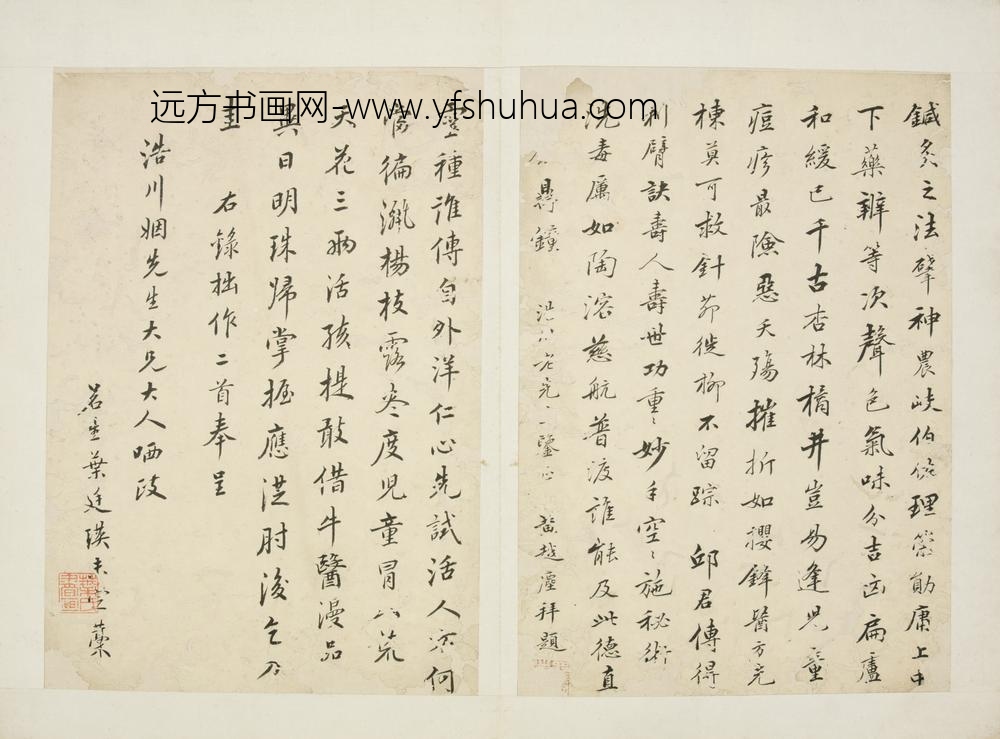 远方书画网-www.yfshuhua.com
鍼灸之法肇神農岐伯脩理策勛庸上中
下藥辨等次聲色氣味分吉凶扁盧
和緩已千古杏林橘井豈易逢兒童
痘疹最險惡夭殤摧折如攖鋒醫方充
棟莫可救針茆徙柳不留踪 邱君傳得
刺臂訣壽人壽世功重〻妙手空〻施秘術
洗毒厲如陶溶慈航普渡誰能及此德直
鼎鐘 浩川老兄 鑒正 黃越塵拜題
靈種誰傳自外洋仁心先試活人方何
徧灑楊枝露參度兒童冒
天花三兩活孩提敢借牛醫漫品
異日明珠歸掌握應從肘後乞
右錄拙作二首奉呈
浩川姻先生大兄大人哂政
葉廷瑛未定藁